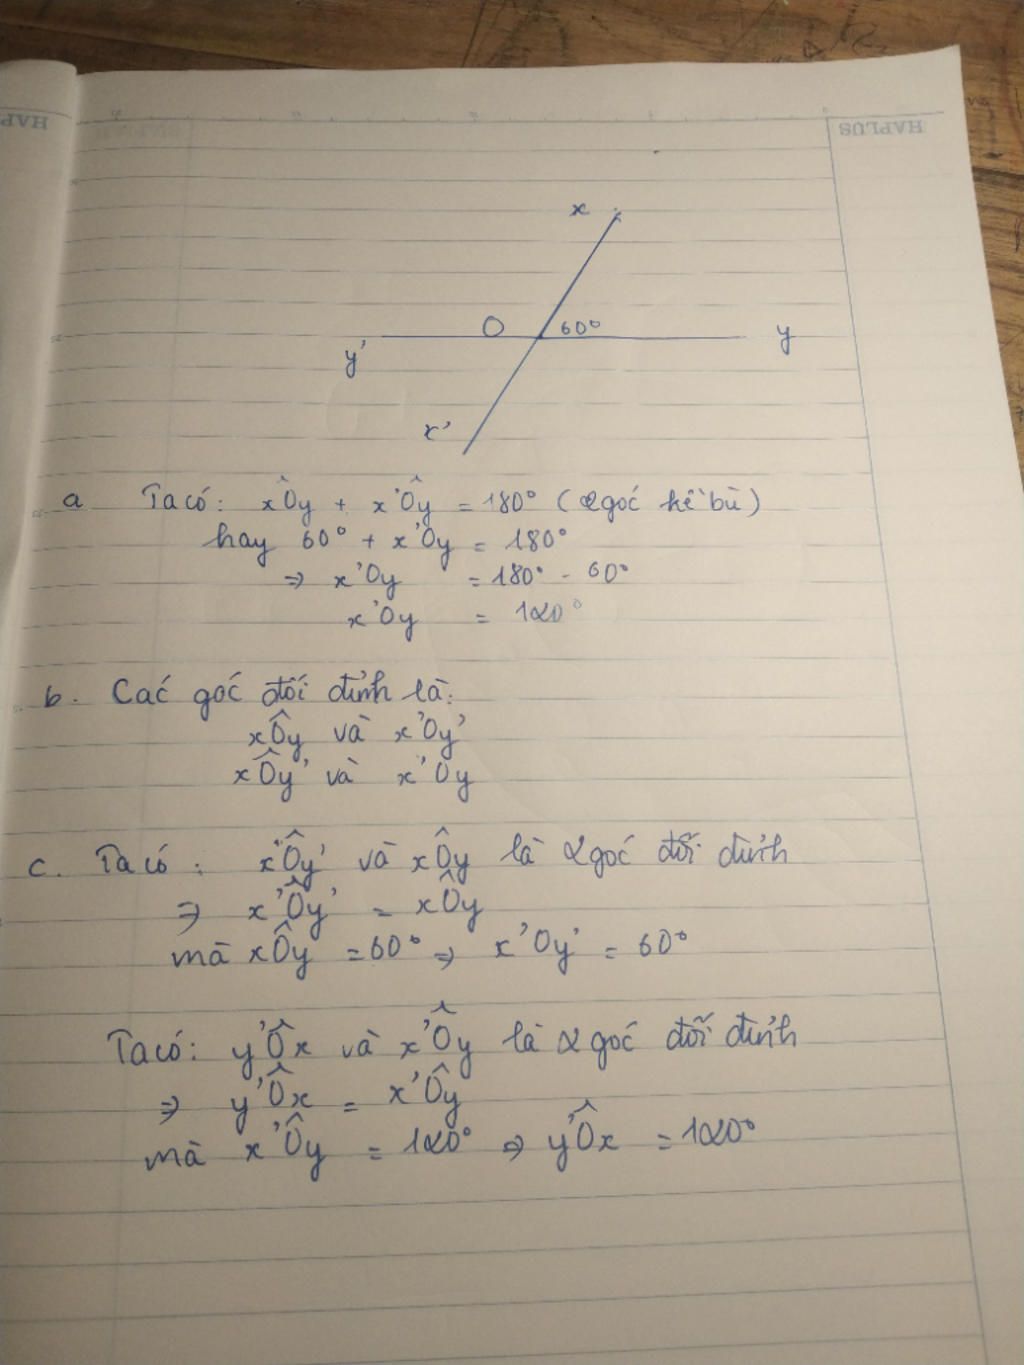 HAPLUS
HAPLUS
x
O 60° y
y'
x'
a Ta có: xÔy + x'Ôy = 180° (2 góc kề bù)
hay 60° + x'Oy = 180°
⇒ x'Oy = 180° - 60°
x'Oy = 120°
b. Các góc đối đỉnh là:
xÔy và x'Oy'
xÔy' và x'Oy
c. Ta có: x'Ôy' và xÔy là 2 góc đối đỉnh
⇒ x'Ôy' = xÔy
mà xÔy = 60° ⇒ x'Oy' = 60°
Ta có: y'Ôx và x'Ôy là 2 góc đối đỉnh
⇒ y'Ôx = x'Ôy
mà x'Ôy = 120° ⇒ y'Ôx = 120°